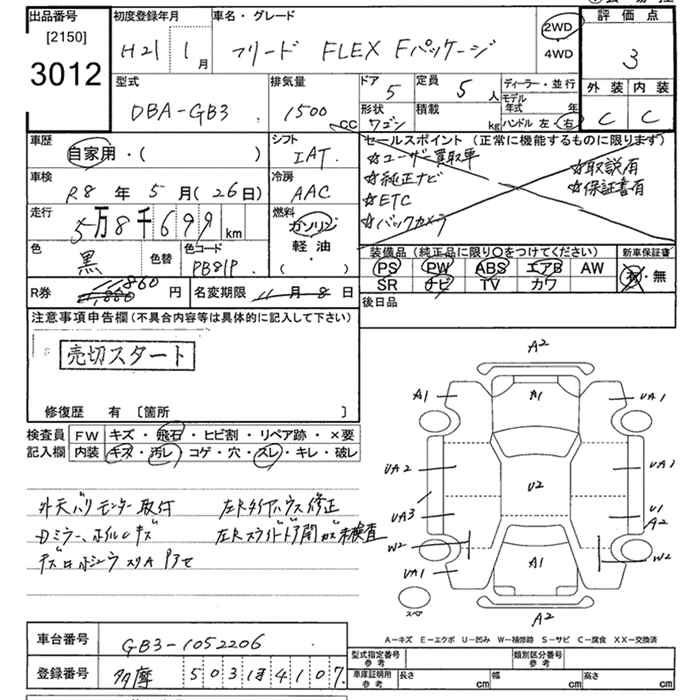 出品番号
[2150]
3012
初度登録年月
H21 1月
車名・グレード
フリード FLEX Fパッケージ
2WD
4WD
評価点
3
外装 内装
C C
型式
DBA-GB3
排気量
1500 cc
ドア 5
定員 5 人
形状 ワゴン
積載 kg
ディーラー・並行
モデル年式 年
ハンドル 左・右
車歴
自家用・( )
シフト
IAT
セールスポイント (正常に機能するものに限ります)
☆ユーザー買取車
☆純正ナビ
☆ETC
☆バックカメラ
☆取説有
☆保証書有
車検
R8 年 5 月 (26日)
冷房
AAC
走行
5万8千699 km
燃料
ガソリン
軽油
( )
色
黒
色替
色コード
PB81P
装備品 (純正品に限り○をつけてください)
PS PW ABS エアB AW
SR ナビ TV カワ
新車保証書
有・無
R券 11,860 円
名変期限 11 月 8 日
後日品
注意事項申告欄 (不具合内容等は具体的に記入して下さい)
売切スタート
修復歴 有 [箇所 ]
検査員記入欄
FW キズ・飛石・ヒビ割・リペア跡・×要
内装 キズ・汚レ・コゲ・穴・スレ・キレ・破レ
外天バリ モーター取付
左Rタイヤハウス修正
Dミラー、ホイルキズ
左Rスライドドア開かず未検査
A2
A1
A1
UA1
UA2
U2
UA1
UA3
U1
A2
W2
W2
UA1
A1
A2
スペア
A-キズ E-エクボ U-凹み W-補修跡 S-サビ C-腐食 XX-交換済
車台番号
GB3-1052206
登録番号
多摩 503 は 4107
型式指定番号
参考
類別区分番号
参考
車庫証明
参考
長さ cm 幅 cm 高さ cm